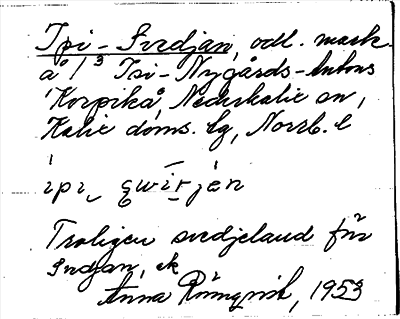 Ipi-Svedjan, odl. mark.
å 1/3 Isi-Nygårds-Antons
Korpikå, Nederkalix sn,
Kalix doms. lg, Norrb. l
ipi
Troligen svedjeland för
Indjan, ek
Anna Rönnqvist, 1953